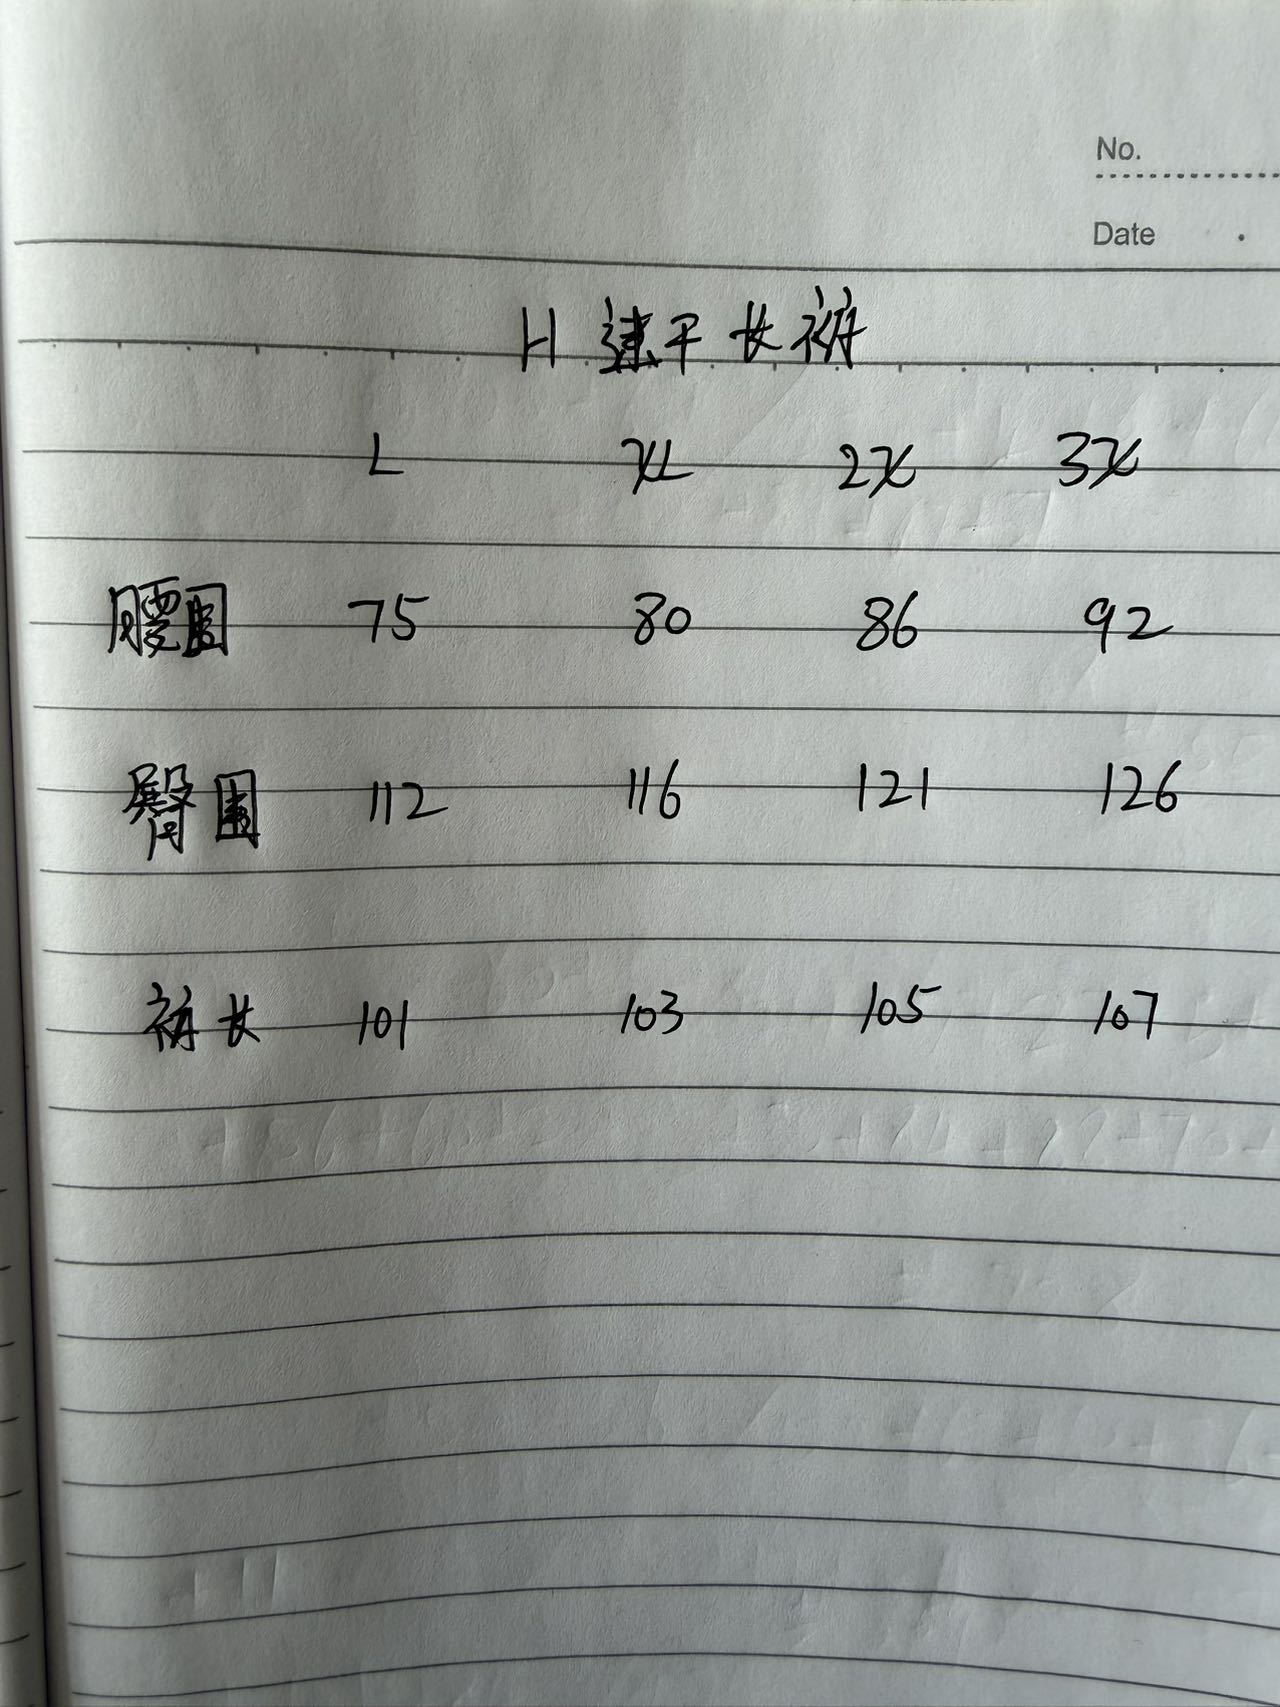 No.
Date
H 速干长裤
L XL 2X 3X
腰围 75 80 86 92
臀围 112 116 121 126
裤长 101 103 105 107